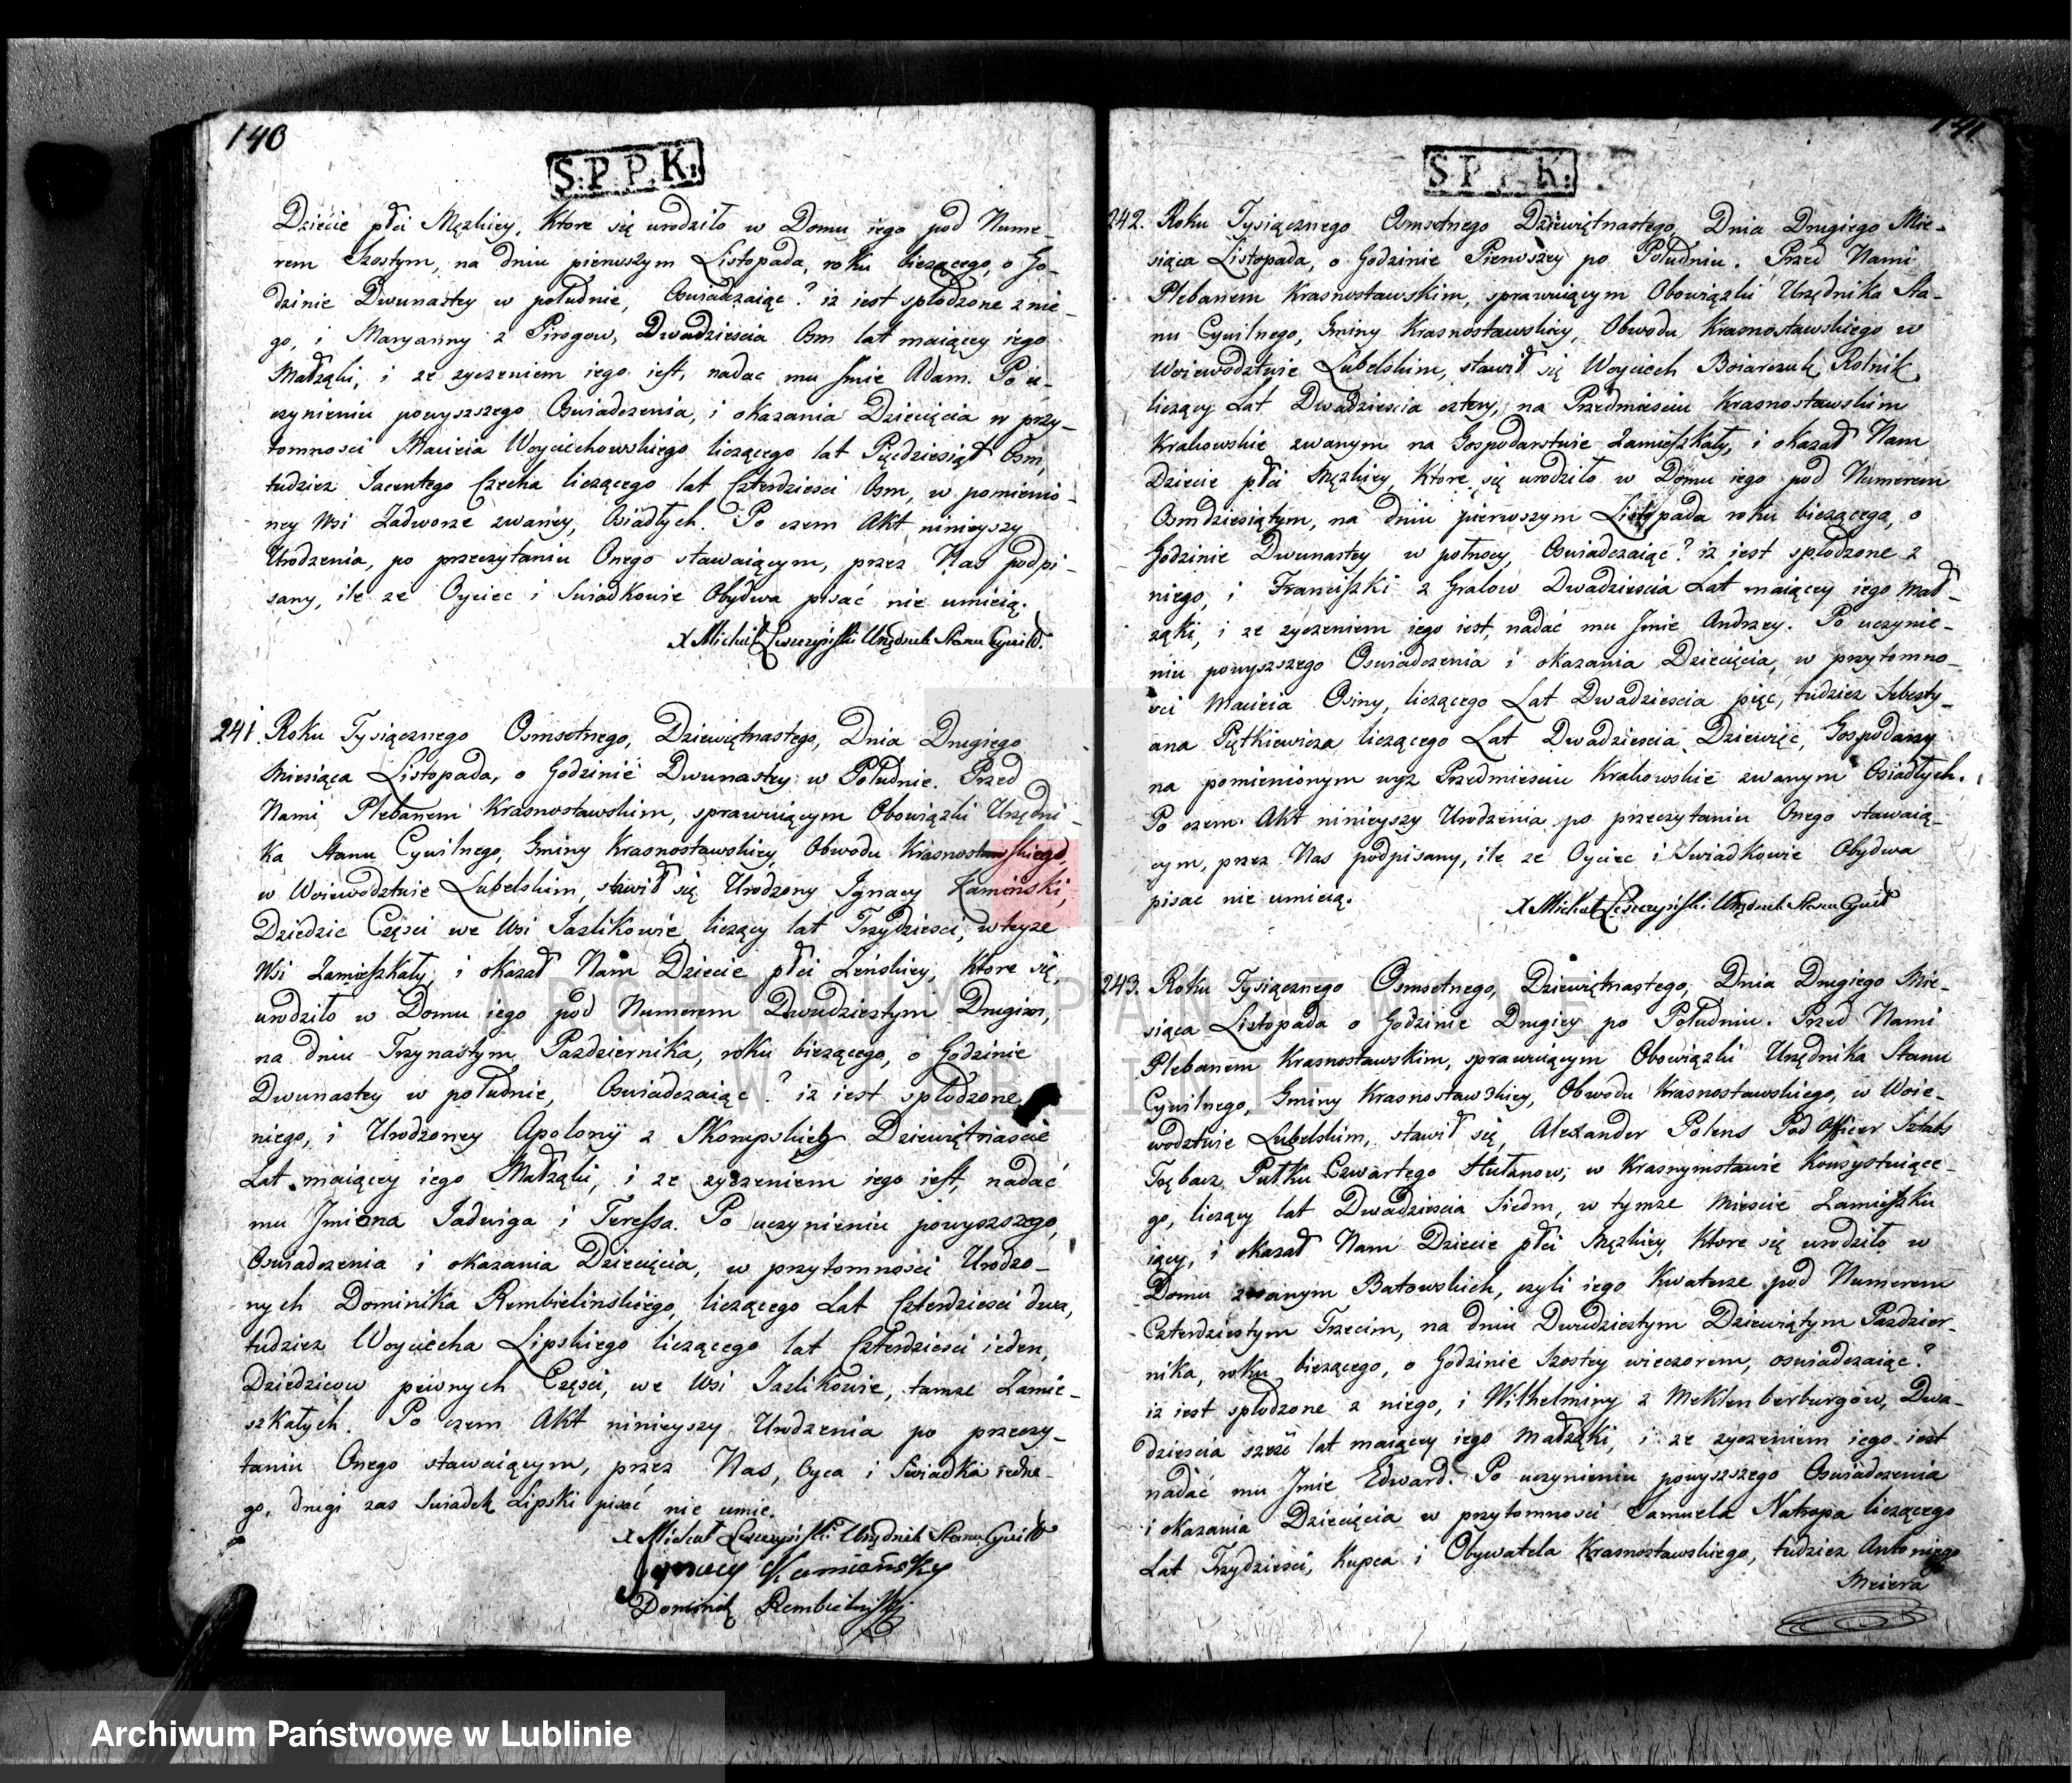 140
S.P.P.K.
Dziecię płci Męzkiey, Ktore się urodziło w Domu iego pod Nume-
rem Szostym, na dniu pierwszym Listopada, roku bieżącego, o Go-
dzinie Dwunastey w południe, Oswiadczaiąc? iż iest spłodzone z nie-
go, i Maryanny z Pirogow, Dwadziescia Osm lat maiącey iego
Małżąki, i że zyczeniem iego iest, nadac mu Jmie Adam. Po u-
czynieniu powyszszego Oswiadczenia, i okazania Dziecięcia w przy-
tomnosci Macieia Woyciechowskiego liczącego lat Pięcdziesiąt Osm,
tudziez Jacentego Czecha liczącego lat Czterdziesci Osm, w pomienio-
ney Wsi Zadworze zwaney, Osiadłych. Po czem Akt ninieyszy
Urodzenia, po przeczytaniu Onego stawaiącym, przez Nas podpi-
sany, ile ze Oyciec i Swiadkowie Obydwa pisać nie umieią.
X Michał Leszczyński Urzędnik Stanu Cywil.
241. Roku Tysiącznego Osmsetnego, Dziewiętnastego, Dnia Drugiego
Miesiąca Listopada, o Godzinie Dwunastey w Południe. Przed
Nami Plebanem Krasnostawskim, sprawuiącym Obowiązki Urzędni-
ka Stanu Cywilnego, Gminy Krasnostawskiey, Obwodu Krasnostawskiego,
w Woiewodztwie Lubelskim, stawił się Urodzony Ignacy Kaminski,
Dziedzic Części we Wsi Jaslikowie, liczący lat Trzydziesci, w teyze
Wsi Zamieszkały, i okazał Nam Dziecie płci Zeńskiey, Ktore się,
urodziło w Domu iego pod Numerem Dwudziestym Drugim,
na dniu Trzynastym Pazdziernika, roku bieżącego, o Godzinie
Dwunastey w południe, Oswiadczaiąc? iż iest spłodzone
niego, i Urodzoney Apolonij z Skompskich Dziewiętnascie
Lat maiącey iego Małżąki, i ze zyczeniem iego iest, nadać
mu Jmiona Jadwiga i Teressa. Po uczynieniu powyszszego,
Oswiadczenia i okazania Dziecięcia, w przytomności Urodzo-
nych Dominika Rembielinskiego, liczącego Lat Czterdziesci dwa,
tudziez Woyciecha Lipskiego liczącego lat Czterdziesci ieden,
Dziedzicow pewnych Części, we Wsi Jaslikowie, tamze Zamie-
szkałych. Po czem Akt ninieyszy Urodzenia po przeczy-
taniu Onego stawaiącym, przez Nas, Oyca i Swiadka iedne-
go, drugi zas Swiadek Lipski pisać nie umie.
X Michał Leszczyński Urzędnik Stanu Cywil
Jgnacy Kaminsky
Dominik Rembielinski
141
S.P.P.K.
242. Roku Tysiącznego Osmsetnego Dziewiętnastego, Dnia Drugiego Mie-
siąca Listopada, o Godzinie Pierwszey po Południu. Przed Nami
Plebanem Krasnostawskim, sprawuiącym Obowiązki Urzędnika Sta-
nu Cywilnego, Gminy Krasnostawskiey, Obwodu Krasnostawskiego w
Woiewodztwie Lubelskim, stawił się Woyciech Boiarczuk Rolnik,
liczący Lat Dwadziescia cztery, na Przedmiesciu Krasnostawskim
Krakowskie zwanym na Gospodarstwie Zamieszkały, i okazał Nam
Dziecie płci Męzkiey, Ktore się urodziło w Domu iego pod Numerem
Osmdziesiątym, na dniu pierwszym Listopada roku bieżącego, o
Godzinie Dwunastey w połnocy, Oswiadczaiąc? iż iest spłodzone z
niego, i Franciszki z Gralow Dwadziescia Lat maiącey iego Mał-
żąki, i ze zyczeniem iego iest, nadać mu Jmie Andrzey. Po uczynie-
niu powyszszego Oswiadczenia i okazania Dziecięcia, w przytomno-
sci Macieia Osiny, liczącego Lat Dwadziescia pięc, tudziez Sebesty-
ana Piątkiewicza liczącego Lat Dwadziescia Dziewięć, Gospodarzy
na pomienionym wyz Przedmiesciu Krakowskie zwanym Osiadłych.
Po czem Akt ninieyszy Urodzenia po przeczytaniu Onego stawaią-
cym, przez Nas podpisany, ile ze Oyciec i Swiadkowie Obydwa
pisac nie umieią.
X Michał Leszczyński Urzędnik Stanu Cywil
243. Roku Tysiącznego Osmsetnego, Dziewiętnastego, Dnia Drugiego Mie-
siąca Listopada o Godzinie Drugiey po Południu. Przed Nami
Plebanem Krasnostawskim, sprawuiącym Obowiązki Urzędnika Stanu
Cywilnego, Gminy Krasnostawskiey, Obwodu Krasnostawskiego, w Woie-
wodztwie Lubelskim, stawił się, Alexander Polens Pod Officer Sztabs
Trębacz Pułku Czwartego Hułanow, w Krasnymstawie Konsystuiące-
go, liczący lat Dwadziescia Siedm, w tymze Miescie Zamieszku
iący, i okazał Nam Dziecie płci Męzkiey, Ktore się urodziło w
Domu zwanym Batowskich, czyli iego Kwaterze pod Numerem
Czterdziestym Trzecim, na dniu Dwudziestym Dziewiątym Pazdzier-
nika, roku bieżącego, o Godzinie Szostey wieczorem, oswiadczaiąc?
iż iest spłodzone z niego, i Wilhelminy z Meklenberburgów, Dwa-
dziescia szesc lat maiącey iego Małżąki, i ze zyczeniem iego iest
nadać mu Jmie Edward. Po uczynieniu powyszszego Oswiadczenia
i okazania Dziecięcia w przytomnosci Samuela Natropa liczącego
Lat Trzydziesci, Kupca i Obywatela Krasnostawskiego, tudziez Antoniego
Meiera
ARCHIWUM PAŃSTWOWE
W LUBLINIE
Archiwum Państwowe w Lublinie